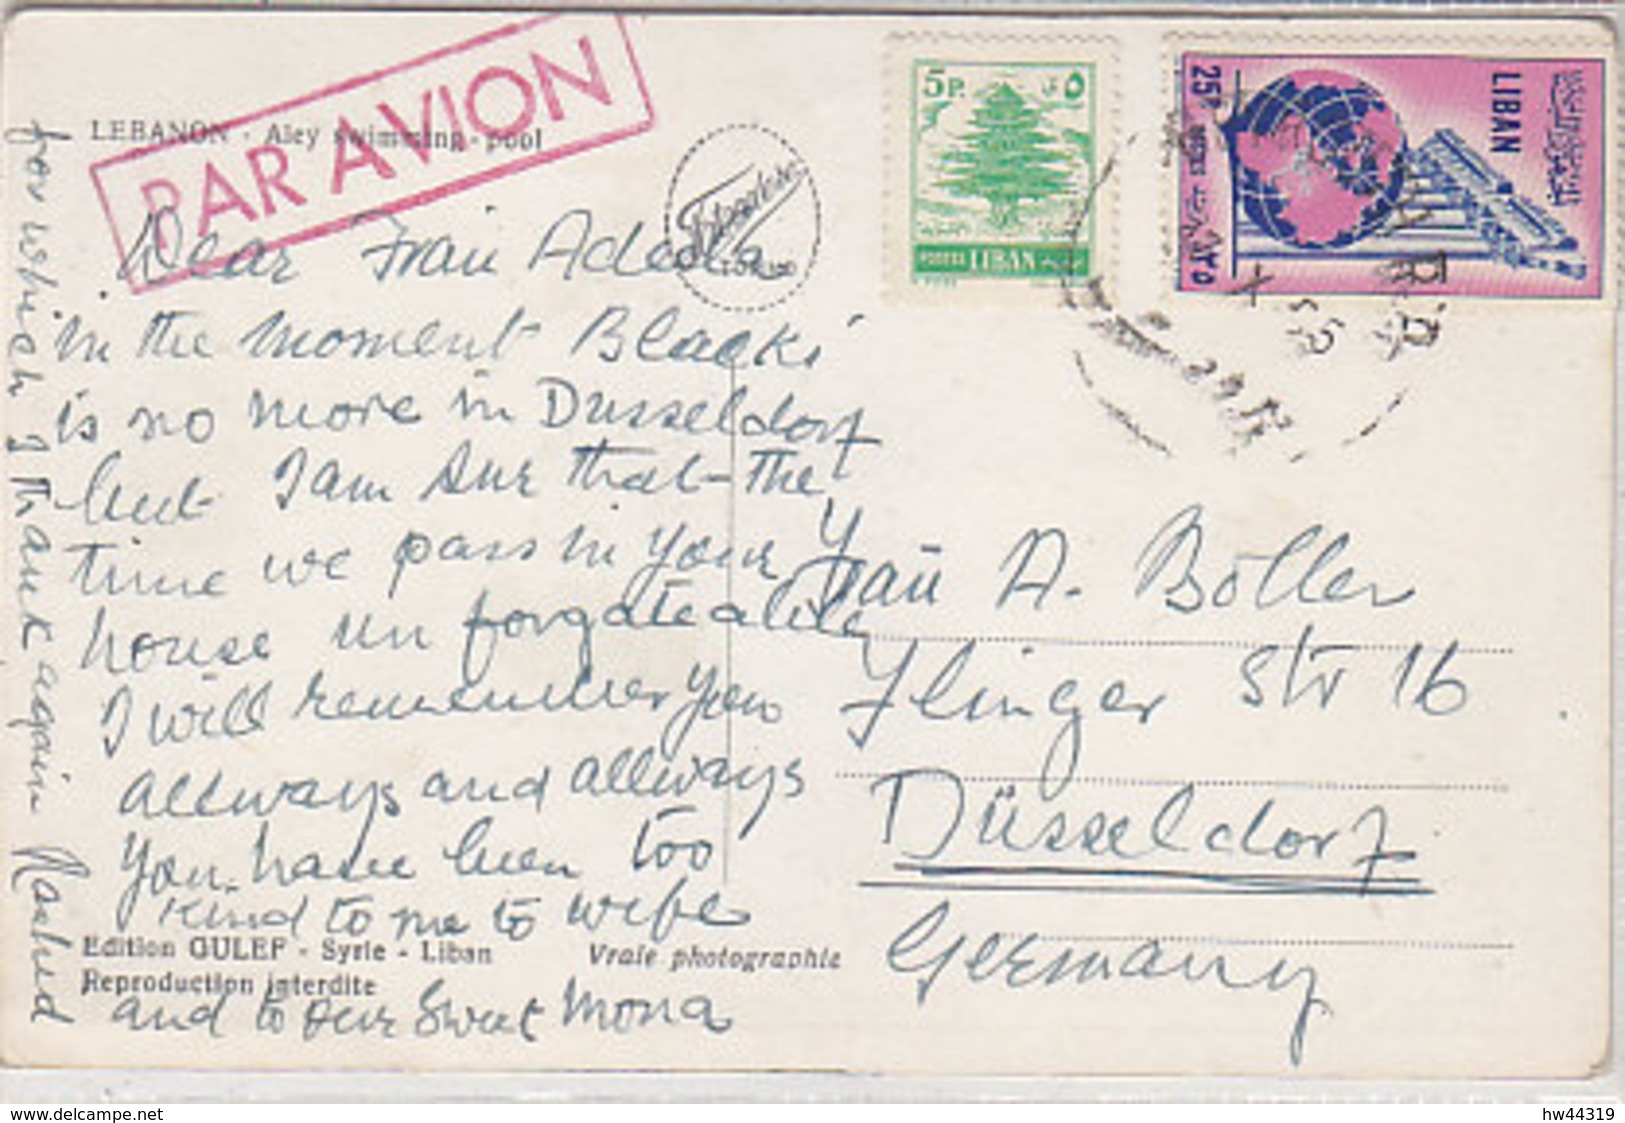 LEBANON - Aley swimming-pool
PAR AVION
5 P.
٥
POSTES LIBAN
25 P
LIBAN
Dear Frau Adela
in the moment Blacki
is no more in Dusseldorf
but I am sur that the
time we pass in your
house un forgateable
I will remember you
allways and allways
you have been too
kind to me to wife
and to our Sweet Mona
for which I thank again Rashed
Frau A. Böller
Flinger Str 16
Düsseldorf
Germany
Edition GULEF - Syrie - Liban
Vraie photographie
Reproduction interdite
www.delcampe.net
hw44319